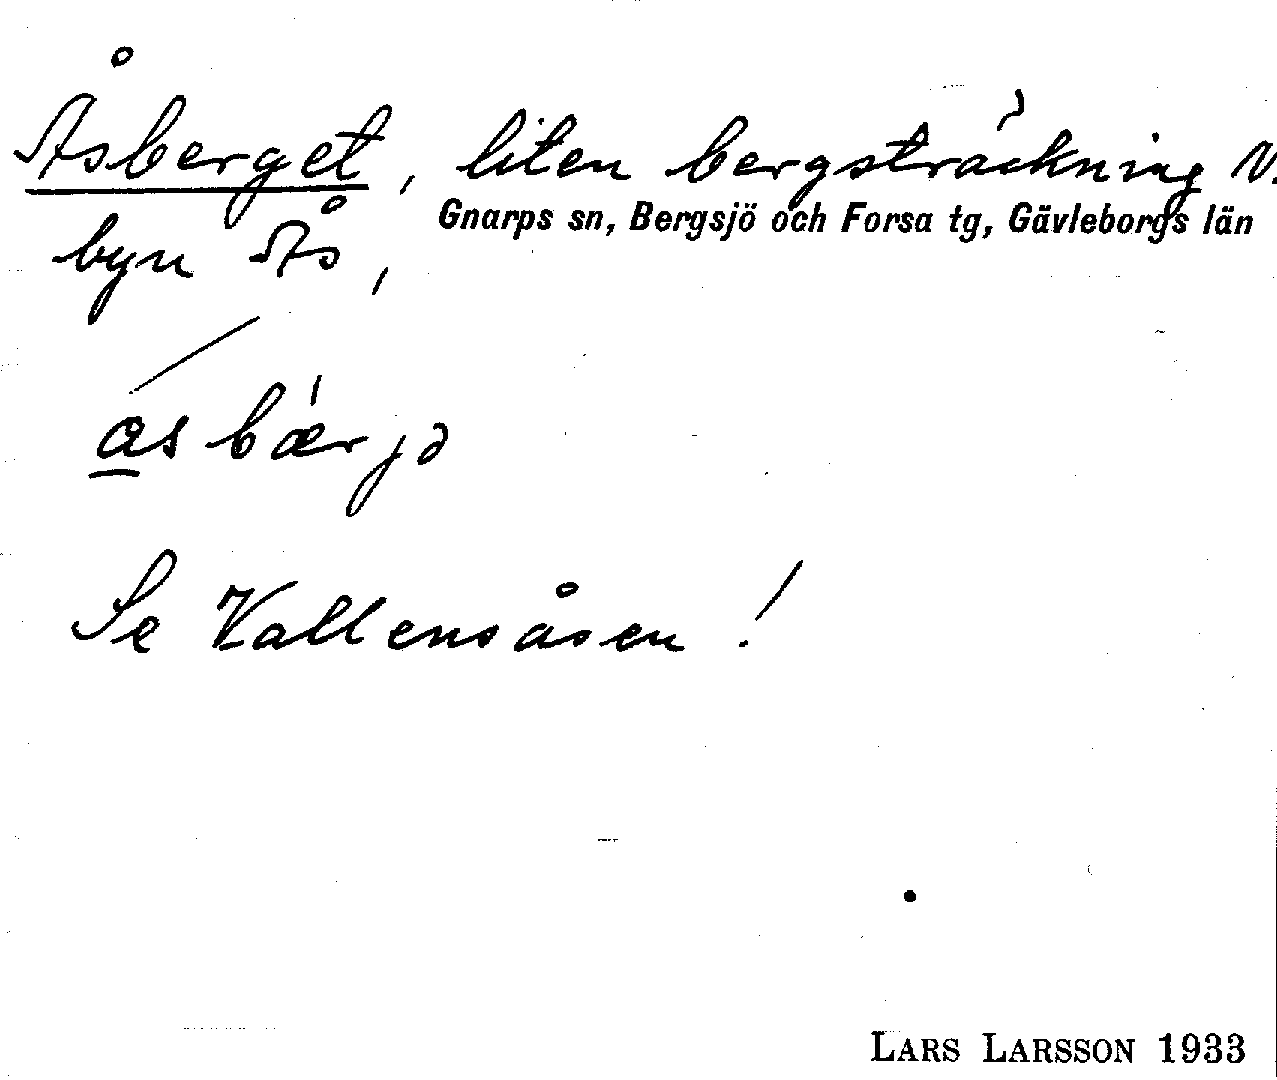 Åsberget, liten bergsträckning V.
Gnarps sn, Bergsjö och Forsa tg, Gävleborgs län
byn Ås,
a̲s bær jə
Se Vallensåsen!
LARS LARSSON 1933